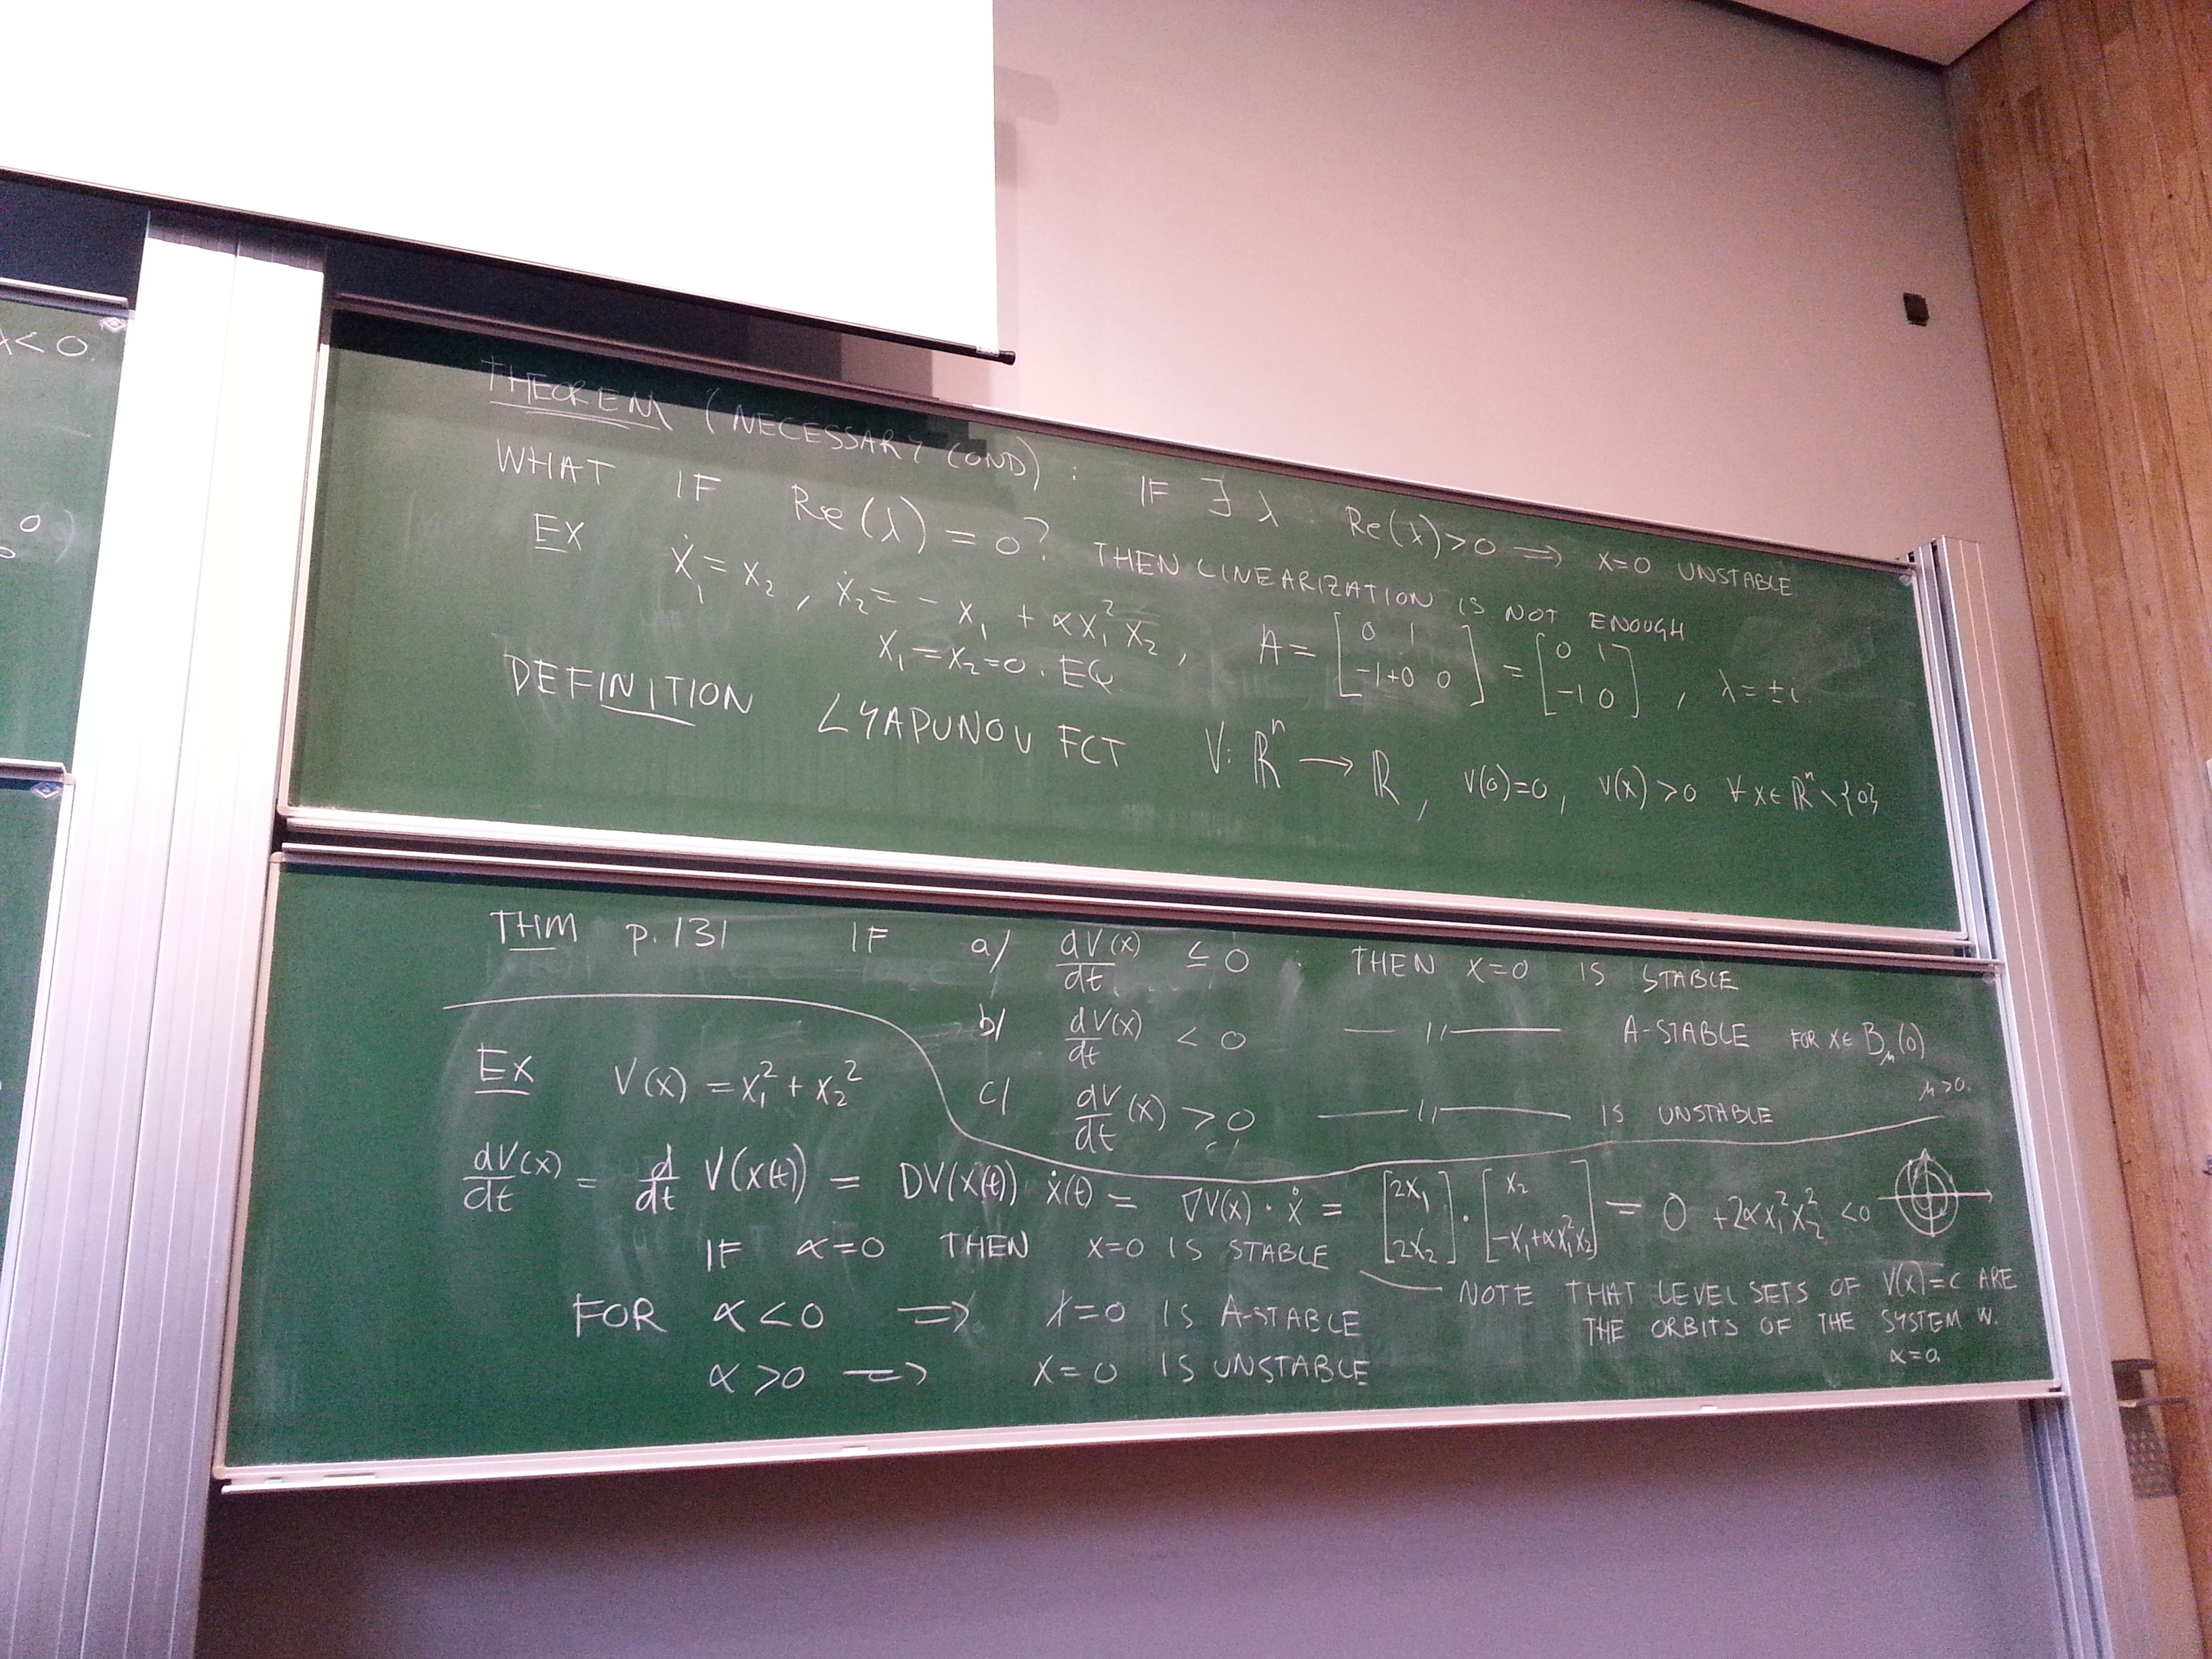 λ<0.
THEOREM (NECESSARY COND): IF ∃ λ Re(λ)>0 ⟹ x=0 UNSTABLE.
WHAT IF Re(λ) = 0? THEN LINEARIZATION IS NOT ENOUGH
EX ẋ₁ = x₂, ẋ₂ = - x₁ + αx₁²x₂, A = [0 1; -1+0 0] = [0 1; -1 0], λ = ±i.
x₁=x₂=0. EQ.
DEFINITION LYAPUNOV FCT V: ℝⁿ → ℝ, V(0)=0, V(x)>0 ∀ x∈ℝⁿ∖{0}
THM p. 131 IF a/ dV(x)/dt ≤ 0 : THEN x=0 IS STABLE
b/ dV(x)/dt < 0 — 〃 — A-STABLE FOR x∈ B_μ(0)
μ>0.
c/ dV/dt(x) > 0 — 〃 — IS UNSTABLE
EX V(x) = x₁² + x₂²
dV(x)/dt = d/dt V(x(t)) = DV(x(t))·ẋ(t) = ∇V(x)·ẋ = [2x₁; 2x₂]·[x₂; -x₁+αx₁²x₂] = 0 + 2αx₁²x₂² <0
IF α=0 THEN x=0 IS STABLE
NOTE THAT LEVEL SETS OF V(x)=c ARE
THE ORBITS OF THE SYSTEM W.
α=0.
FOR α<0 ⟹ x=0 IS A-STABLE
α>0 ⟹ x=0 IS UNSTABLE